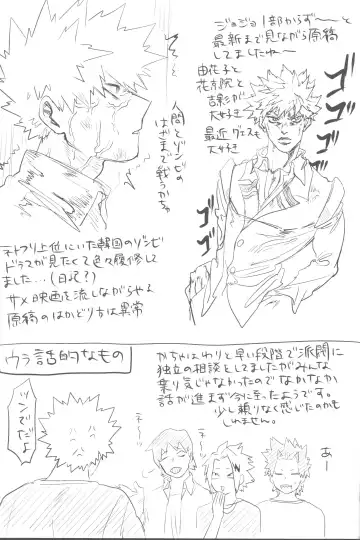 ジョジョ1部からず〜〜と
最新まで見ながら原稿
してましたわ〜
由花子と
花京院と
吉影が
大好き
最近グェスも
大好き
人間とゾンビの
はざまで戦うかちゅ
ゴゴゴゴ
ゴゴゴ
ネトフリ上位にいた韓国のゾンビ
ドラマが見たくて色々履修して
ました…(日記?)
サメ映画を流しながらやると
原稿のはかどり方は異常
ウラ話的なもの
かちゃはわりと早い段階で派閥に
独立の相談としてましたがみんな
乗り気じゃなかったのでなかなか
話が進まず今に至ったようです。
少し頼りなく感じたのかも
しれません。
ツンでだよ
え〜
え〜
あー